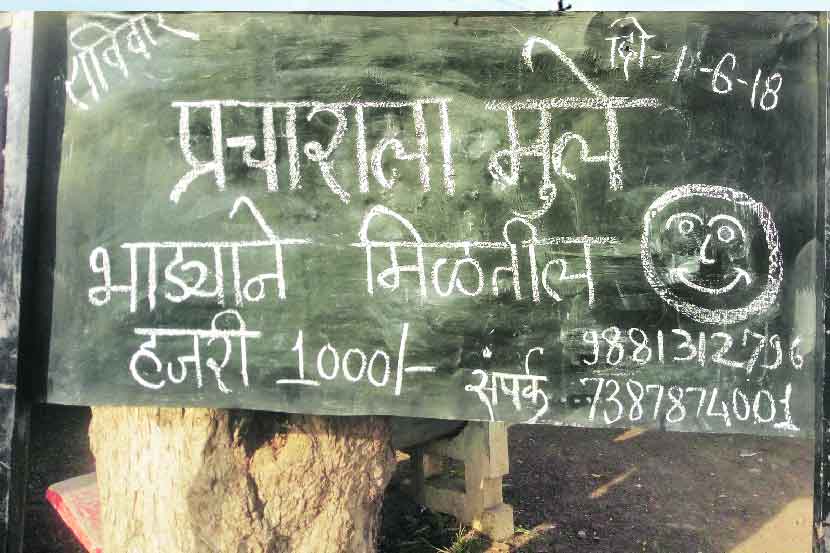 रविवार दि-11-6-18
प्रचाराला मुले
भाड्याने मिळतील
हजरी 1000/- संपर्क 9881312796
7387874001